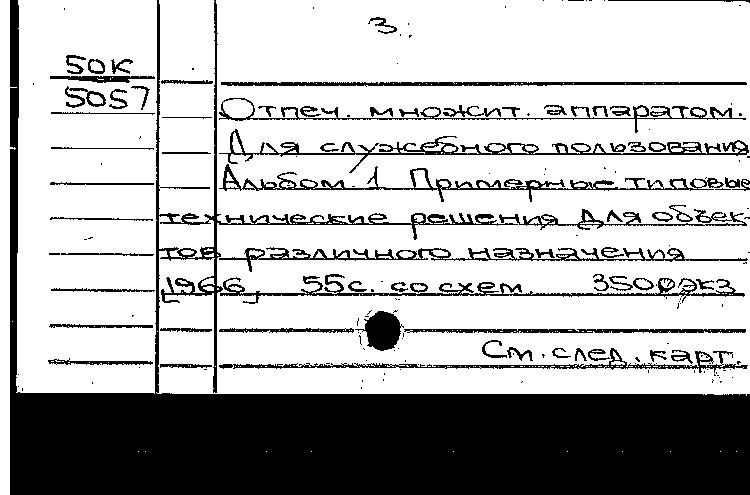 3.
50К
5057
Отпеч. множит. аппаратом.
Для служебного пользования
Альбом. 1 Примерные типовые
технические решения для объек-
тов различного назначения
1966 55с. со схем. 3500экз
См. след. карт.